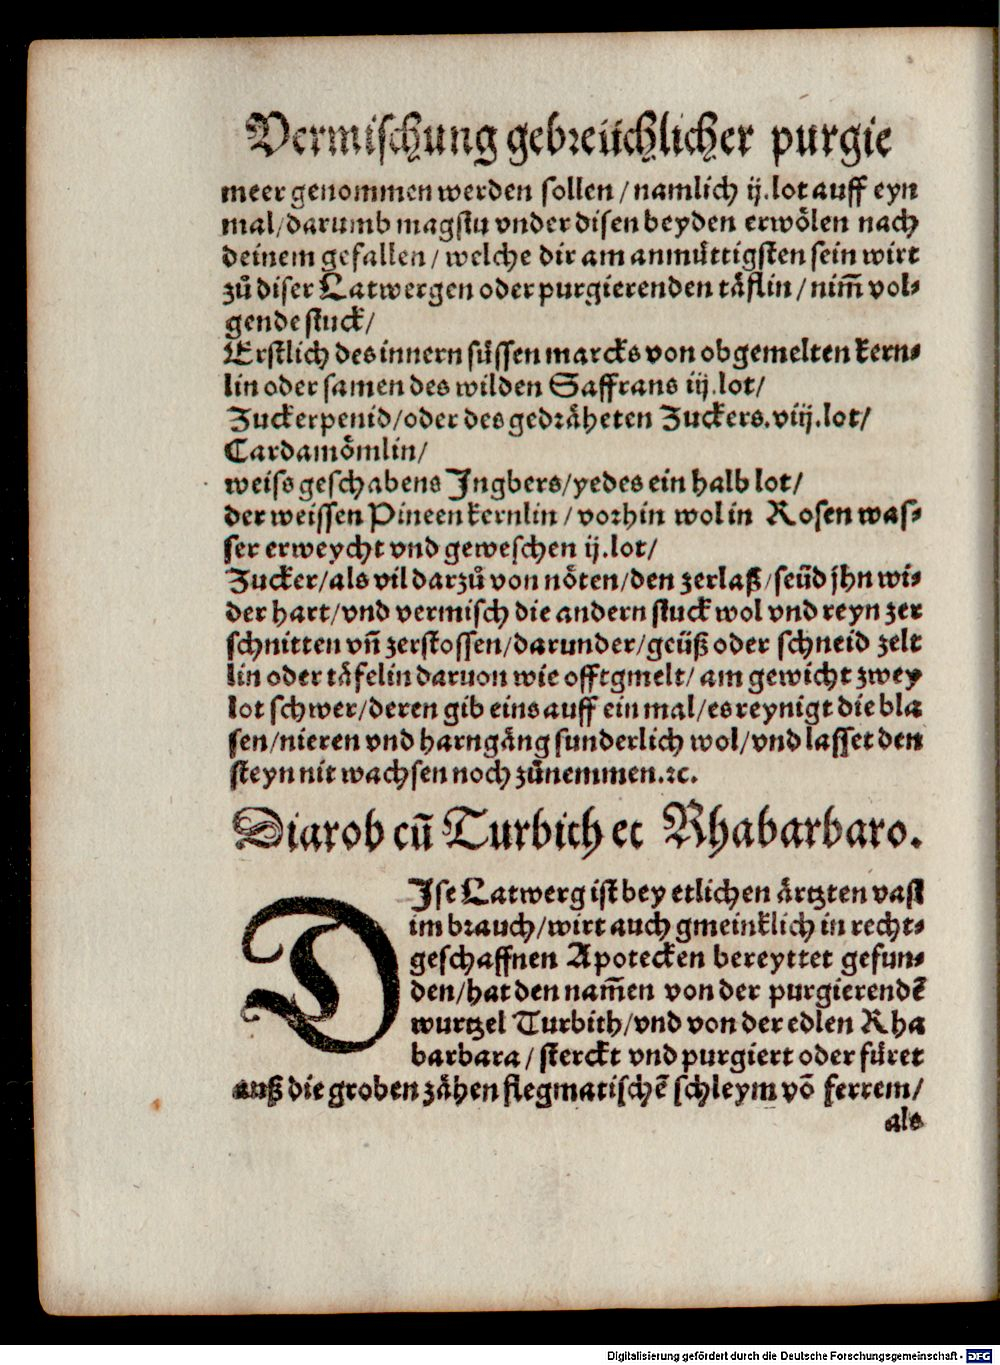 Vermischung gebreüchlicher purgie
meer genommen werden sollen / namlich ij.lot auff eyn
mal/darumb magstu vnder disen beyden erwoͤlen nach
deinem gefallen / welche dir am anmuͤttigsten sein wirt
zuͦ diser Latwergen oder purgierenden taͤflin / nim̄ vol⸗
gende stuck/
Erstlich des innern suͤssen marcks von obgemelten kern⸗
lin oder samen des wilden Saffrans iij.lot/
Zuckerpenid/oder des gedraͤheten Zuckers.viij.lot/
Cardamoͤmlin/
weiss geschabens Jngbers/yedes ein halb lot/
der weissen Pineen kernlin / vorhin wol in Rosen was⸗
ser erweycht vnd geweschen ij.lot/
Zucker/als vil darzuͦ von noͤten/den zerlaß/seüd jhn wi⸗
der hart/vnd vermisch die andern stuck wol vnd reyn zer
schnitten vn̄ zerstossen/darunder/geüß oder schneid zelt
lin oder taͤfelin daruon wie offtgmelt/ am gewicht zwey
lot schwer/deren gib eins auff ein mal/es reynigt die bla
sen/nieren vnd harngaͤng sunderlich wol/vnd lasset den
steyn nit wachsen noch zuͦnemmen.ꝛc.
Diarob cū Turbith et Rhabarbaro.
DJse Latwerg ist bey etlichen aͤrtzten vast
im brauch/wirt auch gmeinklich in recht⸗
geschaffnen Apotecken bereyttet gefun⸗
den/hat den nam̄en von der purgierendē
wurtzel Turbith/vnd von der edlen Rha
barbara / sterckt vnd purgiert oder fuͤret
auß die groben zaͤhen flegmatischē schleym vō ferrem/
als
Digitalisierung gefördert durch die Deutsche Forschungsgemeinschaft - DFG